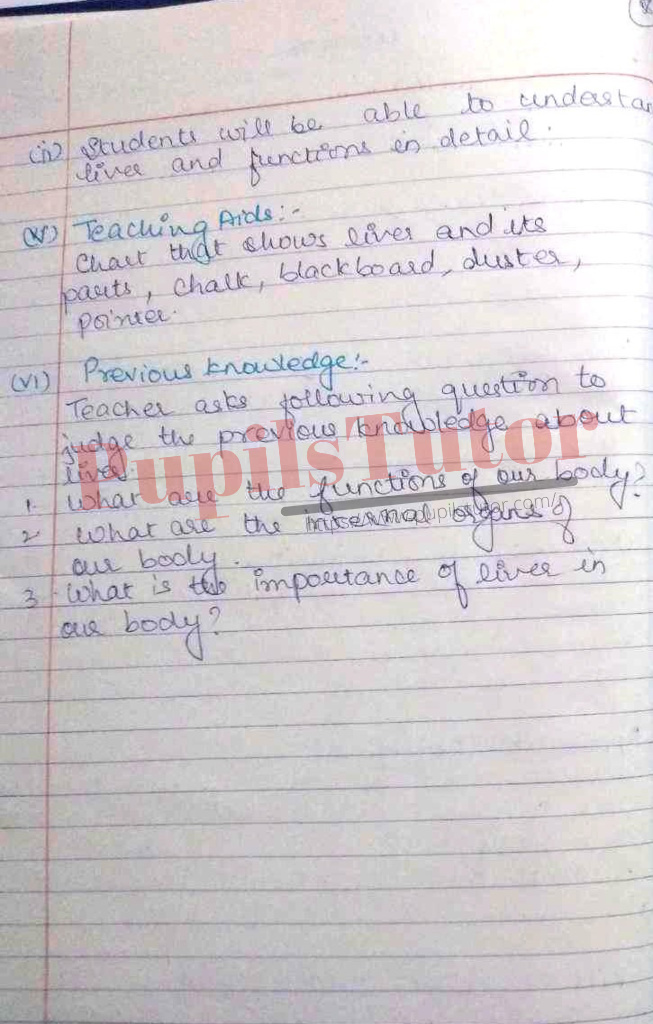 (ii) Students will be able to understa
liver and functions in detail.
(v) Teaching Aids:-
Chart that shows liver and its
parts, chalk, blackboard, duster,
pointer.
(vi) Previous knowledge:-
Teacher asks following question to
judge the previous knowledge about
liver.
PupilsTutor
1. What are the functions of our body?
2 What are the internal organs of
our body.
3. What is the importance of liver in
our body?